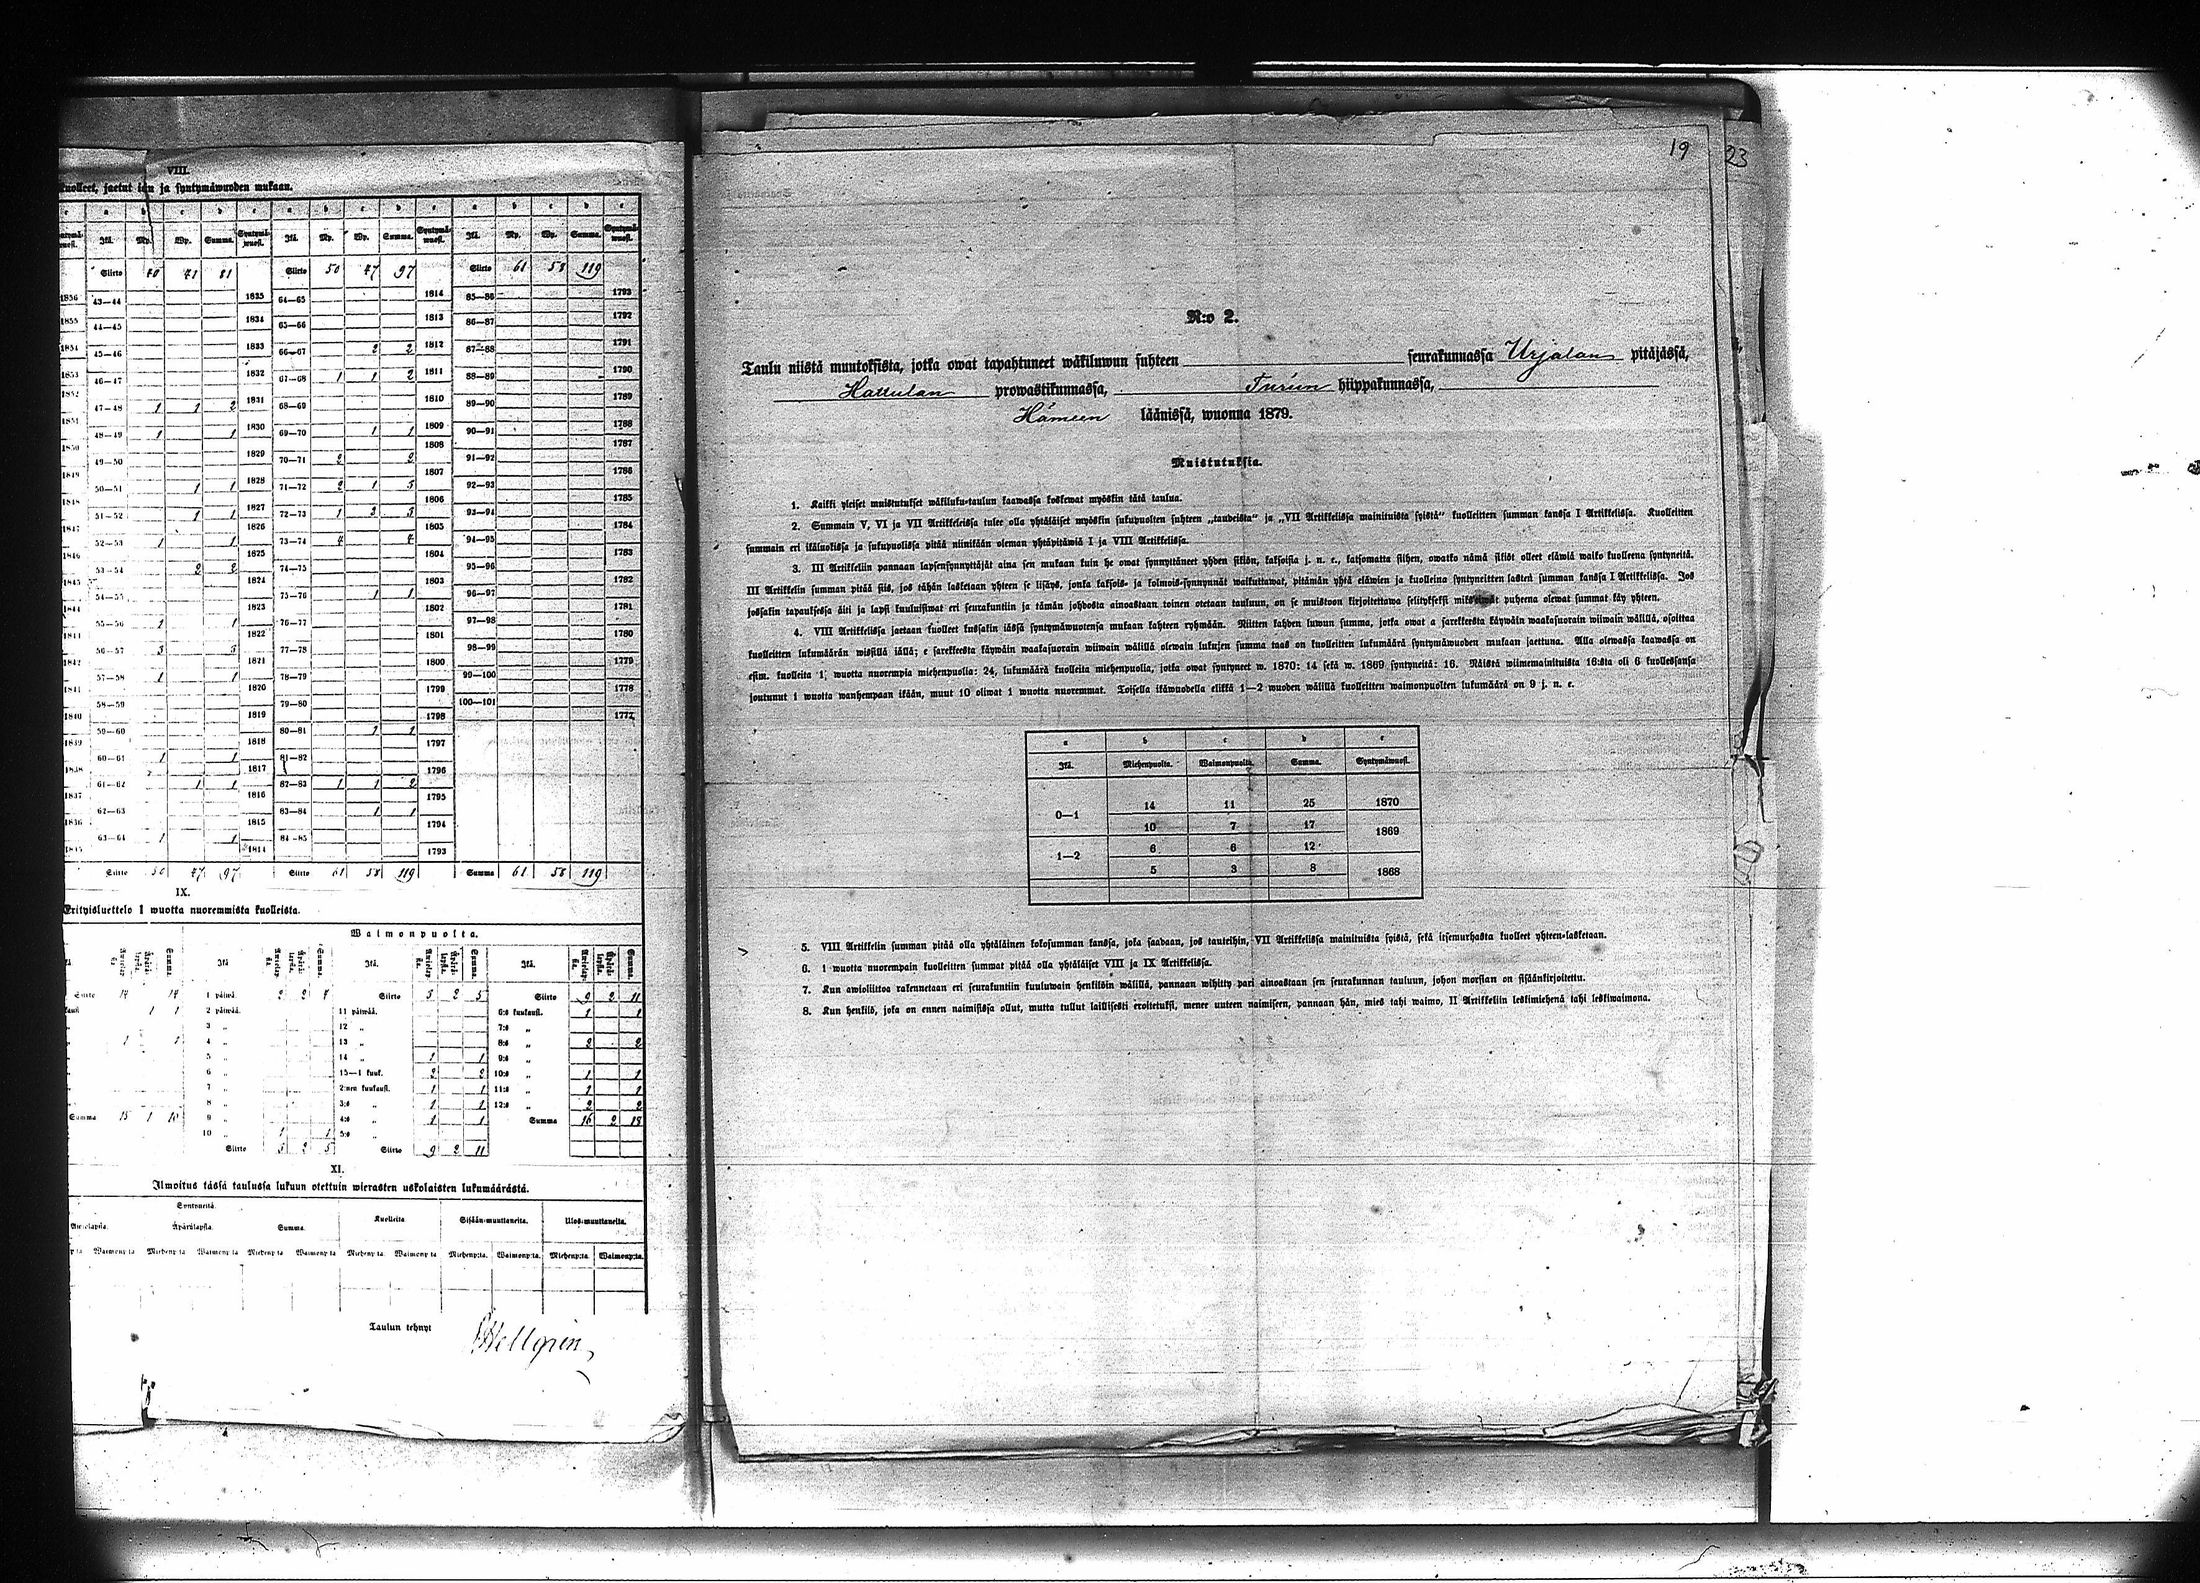 VIII.
kuolleet, jaetut iän ja syntymäwuoden mukaan.
a b c d e a b c d e a b c d e
Ikä. Mp. Wp. Summa. Syntymä-wuosi. Ikä. Mp. Wp. Summa. Syntymä-wuosi. Ikä. Mp. Wp. Summa. Syntymä-wuosi.
Siirto 40 41 81 Siirto 50 47 97 Siirto 61 58 119
1856 43—44 1835 64—65 1814 85—86 1793
1855 44—45 1834 65—66 1813 86—87 1792
1854 45—46 1833 66—67 2 2 1812 87—88 1791
1853 46—47 1832 67—68 1 1 2 1811 88—89 1790
1852 47—48 1 1 2 1831 68—69 1810 89—90 1789
1851 48—49 1 1 1830 69—70 1 1 1809 90—91 1788
1850 49—50 1829 70—71 2 2 1808 91—92 1787
1849 50—51 1 1 1828 71—72 2 1 3 1807 92—93 1786
1848 51—52 1 1 1827 72—73 1 2 3 1806 93—94 1785
1847 52—53 1 1 1826 73—74 4 4 1805 94—95 1784
1846 53—54 2 2 1825 74—75 1804 95—96 1783
1845 54—55 1824 75—76 1 1 1803 96—97 1782
1844 55—56 1 1 1823 76—77 1802 97—98 1781
56—57 3 3 1822 77—78 1801 98—99 1780
1842 57—58 1 1 1821 78—79 1800 99—100 1779
1841 58—59 1820 79—80 1799 100—101 1778
1840 59—60 1819 80—81 1 1 1798 1777
1839 60—61 1 1 1818 81—82 1797
1838 61—62 1 1 1817 82—83 1 1 2 1796
1837 62—63 1816 83—84 1 1 1795
1836 63—64 1 1 1815 84—85 1794
1814 1793
Siirto 50 47 97 Siirto 61 58 119 Summa 61 58 119
IX.
Erityisluettelo 1 wuotta nuoremmista kuolleista.
Waimonpuolta.
Summa. Ikä. Summa. Ikä. Summa. Ikä. Summa.
Siirto 14 14 1 päiwä. 2 2 4 Siirto 3 2 5 Siirto 9 2 11
1 1 2 päiwää. 11 päiwää. 6:s kuukausi. 1 1
3 „ 12 „ 7:s „
1 1 4 „ 13 „ 8:s „ 2 2
5 „ 14 „ 1 1 9:s „
6 „ 15—1 kuuk. 2 2 10:s „ 1 1
7 „ 2:nen kuukausi. 1 1 11:s „ 1 1
8 „ 3:s „ 1 1 12:s „ 2 2
Summa 15 1 16 9 „ 4:s „ 1 1 Summa 16 2 18
10 „ 1 1 5:s „
Siirto 3 2 5 Siirto 9 2 11
XI.
Ilmoitus tässä taulussa lukuun otettuin wierasten uskolaisten lukumäärästä.
Syntyneitä.
Awiolapsia. Äpärälapsia. Summa. Kuolleita Sisään-muuttaneita. Ulos-muuttaneita.
Waimonp:ta Miehenp:ta Waimonp:ta Miehenp:ta Waimonp:ta Miehenp:ta. Waimonp:ta Miehenp:ta. Waimonp:ta. Miehenp:ta. Waimonp:ta.
Taulun tehnyt
Hellgrén
19 23
N:o 2.
Taulu niistä muutoksista, jotka owat tapahtuneet wäkiluwun suhteen seurakunnassa Urjalan pitäjässä,
Hattulan prowastikunnassa, Turun hiippakunnassa,
Hämeen läänissä, wuonna 1879.
Muistutuksia.
1. Kaikki yleiset muistutukset wäkiluku-taulun kaawassa koskewat myöskin tätä taulua.
2. Summain V, VI ja VII Artikkeleissa tulee olla yhtäläiset myöskin sukupuolten suhteen „taudeista“ ja „VII Artikkelissa mainituista syistä“ kuolleitten summan kanssa I Artikkelissa. Kuolleitten
summain eri ikäluokissa ja sukupuolissa pitää niinikään oleman yhtäpitäwiä I ja VIII Artikkelissa.
3. III Artikkeliin pannaan lapsensynnyttäjät aina sen mukaan kuin he owat synnyttäneet yhden sikiön, kaksoisia j. n. e., katsomatta siihen, owatko nämä sikiöt olleet eläwiä waiko kuolleena syntyneitä.
III Artikkelin summan pitää siis, jos tähän lasketaan yhteen se lisäys, jonka kaksois- ja kolmois-synnynnät waikuttawat, pitämän yhtä eläwien ja kuolleina syntyneitten lasten summan kanssa I Artikkelissa. Jos
jossakin tapauksessa äiti ja lapsi kuuluisiwat eri seurakuntiin ja tämän johdosta ainoastaan toinen otetaan tauluun, on se muistoon kirjoitettawa selitykseksi miksi eiwät puheena olewat summat käy yhteen.
4. VIII Artikkelissa jaetaan kuolleet kussakin iässä syntymäwuotensa mukaan kahteen ryhmään. Niitten kahden luwun summa, jotka owat a sarekkeesta käywäin waakasuorain wiiwain wälillä, osoittaa
kuolleitten lukumäärän wissillä iällä; e sarekkeesta käywäin waakasuorain wiiwain wälillä olewain lukujen summa taas on kuolleitten lukumäärä syntymäwuoden mukaan jaettuna. Alla olewassa kaawassa on
esim. kuolleita 1 wuotta nuorempia miehenpuolia: 24, lukumäärä kuolleita miehenpuolia, jotka owat syntyneet w. 1870: 14 sekä w. 1869 syntyneitä: 16. Näistä wiimemainituista 16:sta oli 6 kuollessansa
joutunut 1 wuotta wanhempaan ikään, muut 10 oliwat 1 wuotta nuoremmat. Toisella ikäwuodella elikkä 1—2 wuoden wälillä kuolleitten waimonpuolten lukumäärä on 9 j. n. e.
a b c d e
Ikä. Miehenpuolta. Waimonpuolta. Summa. Syntymäwuosi.
0—1 14 11 25 1870
10 7 17 1869
1—2 6 6 12
5 3 8 1868
5. VIII Artikkelin summan pitää olla yhtäläinen kokosumman kanssa, joka saadaan, jos tauteihin, VII Artikkelissa mainituista syistä, sekä itsemurhasta kuolleet yhteen-lasketaan.
6. 1 wuotta nuorempain kuolleitten summat pitää olla yhtäläiset VIII ja IX Artikkelissa.
7. Kun awioliittoa rakennetaan eri seurakuntiin kuuluwain henkilöin wälillä, pannaan wihitty pari ainoastaan sen seurakunnan tauluun, johon morsian on sisäänkirjoitettu.
8. Kun henkilö, joka on ennen naimisissa ollut, mutta tullut laillisesti eroitetuksi, menee uuteen naimiseen, pannaan hän, mies tahi waimo, II Artikkeliin leskimiehenä tahi leskiwaimona.